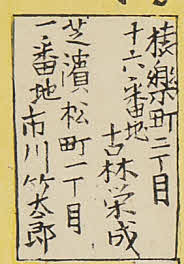 猿樂町二丁目
十六番地
古林栄成
芝濱松町一丁目
一番地市川竹太郎